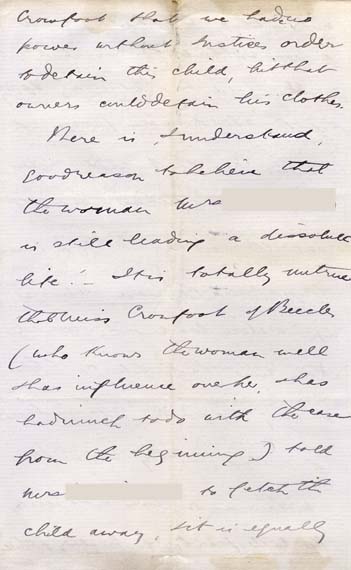 Crowfoot that we had no
power without Justices order
to detain this child, but that
owners could detain his clothes.
There is, I understand,
good reason to believe that
the woman Mrs
is still leading a dissolute
life! – It is totally untrue
that Miss Crowfoot of Beccles
(who knows the woman well
& has influence over her, & has
had much to do with the case
from the beginning) told
Mrs to fetch the
child away, & it is equally